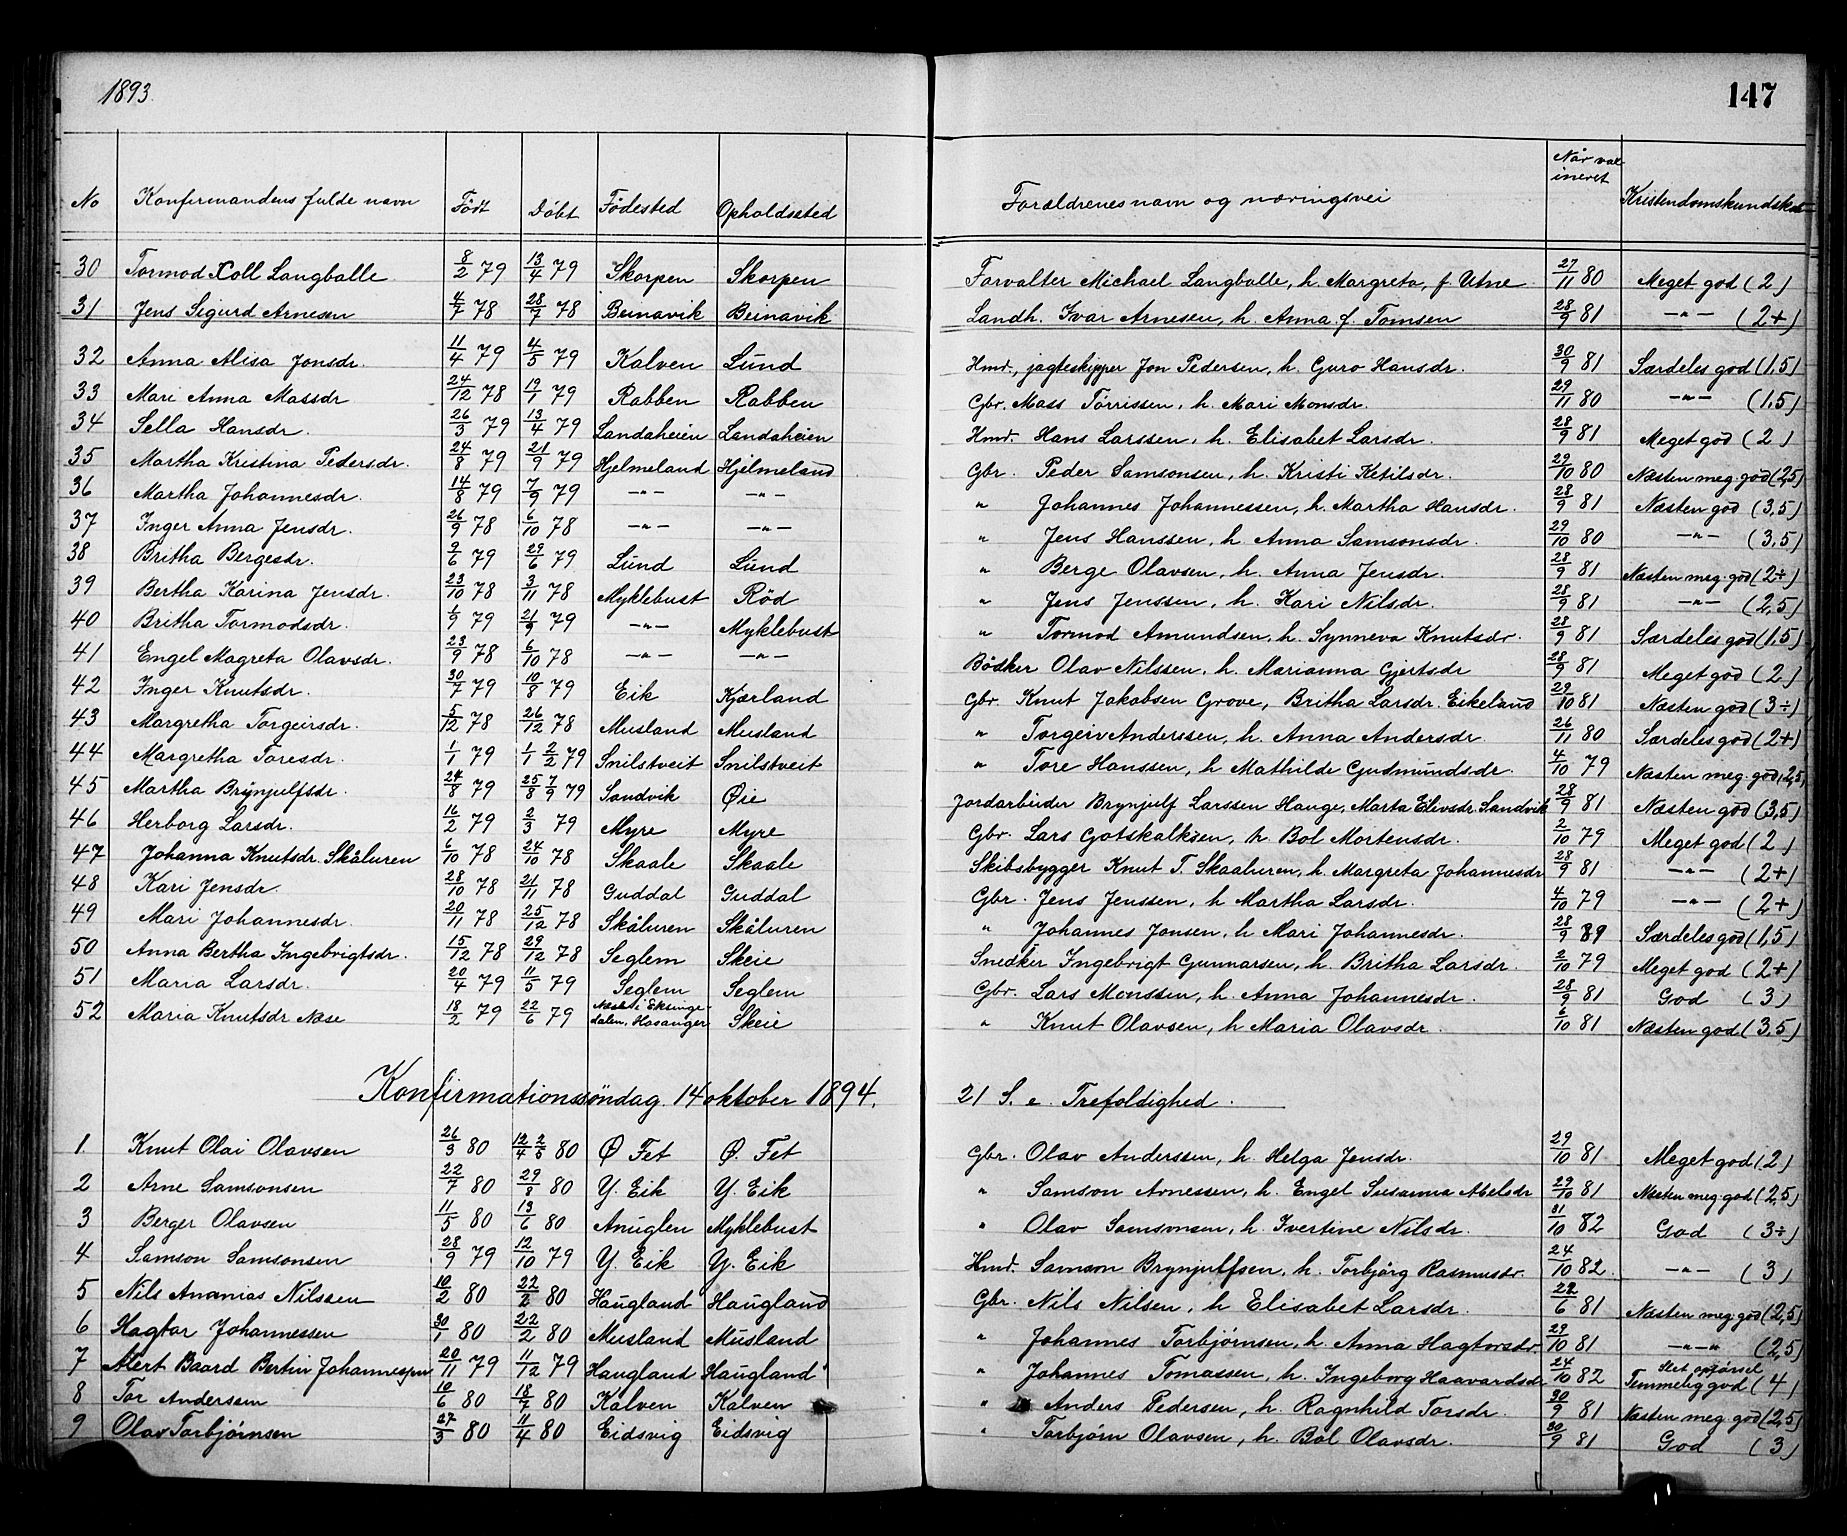 1893.
147
No Konfirmandens fulde navn Født Döbt Födested Opholdssted Forældrenes navn og næringsvei Når vac- Kristendomskundskab
ineret
30 Tormod Koll Langballe 8/2 79 13/4 79 Skorpen Skorpen Forvalter Michael Langballe, h. Margreta, f Utne 27/11 80 Meget god (2)
31 Jens Sigurd Arnesen 4/7 78 28/7 78 Beinavik Beinavik Landh. Ivar Arnesen, h. Anna f. Tomsen 28/9 81 -"- (2+)
32 Anna Alisa Jonsdr. 11/4 79 4/5 79 Kalven Lund Hmd., jagteskipper Jon Pedersen, h. Guro Hansdr. 30/9 81 Særdeles god (1,5)
33 Mari Anna Massdr 24/12 78 19/1 79 Rabben Rabben Gbr. Mass Törrissen, h. Mari Monsdr. 29/11 80 -"- (1,5)
34 Sella Hansdr. 26/3 79 13/4 79 Landaheien Landaheien Hmd. Hans Larssen, h. Elisabet Larsdr. 28/9 81 Meget god (2)
35 Martha Kristina Pedersdr. 24/8 79 21/9 79 Hjelmeland Hjelmeland Gbr. Peder Samsonsen, h. Kristi Ketilsdr. 29/10 80 Næsten meg. god (2,5)
36 Martha Johannesdr. 14/8 79 7/9 79 -"- -"- " Johannes Johannessen, h. Martha Hansdr. 28/9 81 Næsten god (3,5)
37 Inger Anna Jensdr. 26/9 78 6/10 78 -"- -"- " Jens Hanssen, h. Anna Samsonsdr. 29/10 80 -"- (3,5)
38 Britha Bergesdr. 9/6 79 29/6 79 Lund Lund " Berge Olavsen, h. Anna Jensdr. 28/9 81 Næsten meg. god (2÷)
39 Bertha Karina Jensdr. 23/10 78 3/11 78 Myklebust Röd " Jens Jenssen, h. Kari Nilsdr. 28/9 81 -"- (2,5)
40 Britha Tormodsdr. 1/9 79 21/9 79 -"- Myklebust " Tormod Amundsen, h. Synneva Knutsdr. 28/9 81 Særdeles god (1,5)
41 Engel Magreta Olavsdr. 23/9 78 6/10 78 -"- -"- Bödker Olav Nilssen, h. Marianna Gjertsdr 28/9 81 Meget god (2)
42 Inger Knutsdr. 30/7 79 10/8 79 Eik Kjærland Gbr. Knut Jakobsen Grove, Britha Larsdr. Eikeland 29/10 81 Næsten god (3÷)
43 Margretha Torgeirsdr. 5/12 78 26/12 78 Musland Musland " Torgeir Anderssen, h. Anna Andersdr. 26/11 80 Særdeles god (2+)
44 Margretha Toresdr. 1/1 79 1/1 2/2 79 Snilstveit Snilstveit " Tore Hanssen, h Mathilde Gudmundsdr. 4/10 79 Næsten meg. god (2,5)
45 Martha Brynjulfsdr. 24/8 79 25/8 7/9 79 Sandvik Øie Jordarbeider Brynjulf Larssen Hauge, Marta Elivsdr. Sandvik 28/9 81 Næsten god (3,5)
46 Herborg Larsdr. 16/2 79 2/3 79 Myre Myre Gbr. Lars Gotskalksen, h Bol Mortensdr. 2/10 79 Meget god (2)
47 Johanna Knutsdr. Skåluren 6/10 78 24/10 78 Skaale Skaale Skibsbygger Knut T. Skaaluren, h. Margreta Johannesdr 28/9 81 -"- (2+)
48 Kari Jensdr. 28/10 78 21/11 78 Guddal Guddal Gbr. Jens Jenssen, h Martha Larsdr. 4/10 79 -"- (2+)
49 Mari Johannesdr. 20/11 78 25/12 78 Skåluren Skåluren " Johannes Jonsen, h Mari Johannesdr. 28/9 81 Særdeles god (1,5)
50 Anna Bertha Ingebrigtsdr. 15/12 78 29/12 78 Seglem Skeie Snedker Ingebrigt Gunnarsen, h Britha Larsdr. 2/10 79 Meget god (2+)
51 Maria Larsdr. 20/4 79 11/5 79 Seglem Seglem Gbr. Lars Monssen, h. Anna Johannesdr. 28/9 81 God (3)
52 Maria Knutsdr Nese 18/2 79 22/6 79 Nese i Eksinge- dalen, Hosanger Skeie " Knut Olavsen, h Maria Olavsdr. 6/10 81 Næsten god (3,5)
Konfirmationssöndag 14 oktober 1894. 21 S. e. Trefoldighed.
1. Knut Olai Olavsen 26/3 80 12/4 2/5 80 Ø Fet Ø. Fet Gbr. Olav Anderssen, h. Helga Jensdr. 29/10 81 Meget god (2)
2 Arne Samsonsen 22/7 80 29/8 80 Y. Eik Y. Eik " Samson Arnessen, h. Engel Susanna Abelsdr 29/10 81 Næsten meg god (2,5)
3 Berger Olavsen 11/5 80 13/6 80 Anuglen Myklebust " Olav Samsonsen, h. Ivertine Nilsdr. 31/10 82 God (3÷)
4 Samson Samsonsen 28/9 79 12/10 79 Y. Eik Y. Eik Hmd. Samson Brynjulfsen, h. Torbjörg Rasmusdr. 24/10 82. -"- (3)
5 Nils Ananias Nilssen 10/2 80 22/2 80 Haugland Haugland Gbr. Nils Nilsen, h Elisabet Larsdr. 22/6 81 Næsten meg. god (2,5)
6 Hagtor Johannessen 30/1 80 22/2 80 Musland Musland " Johannes Torbjørnsen, h. Anna Hagtorsdr. 29/10 81 -"- (2,5)
7 Alert Baard Bertin Johannessen 20/11 79 11/12 79 Haugland Haugland " Johannes Tomassen, h. Ingeborg Haavardsdr 24/10 82 Slet opförsel Temmelig god (4)
8 Tor Andersen 10/6 80 18/7 80 Kalven Kalven " Anders Pedersen, h Ragnhild Torsdr. 30/9 81 Næsten meg god (2,5)
9 Olav Torbjørnsen 27/3 80 11/4 80 Eidsvig Eidsvig " Torbjörn Olavsen, h. Bol Olavsdr. 30/9 81 God (3)